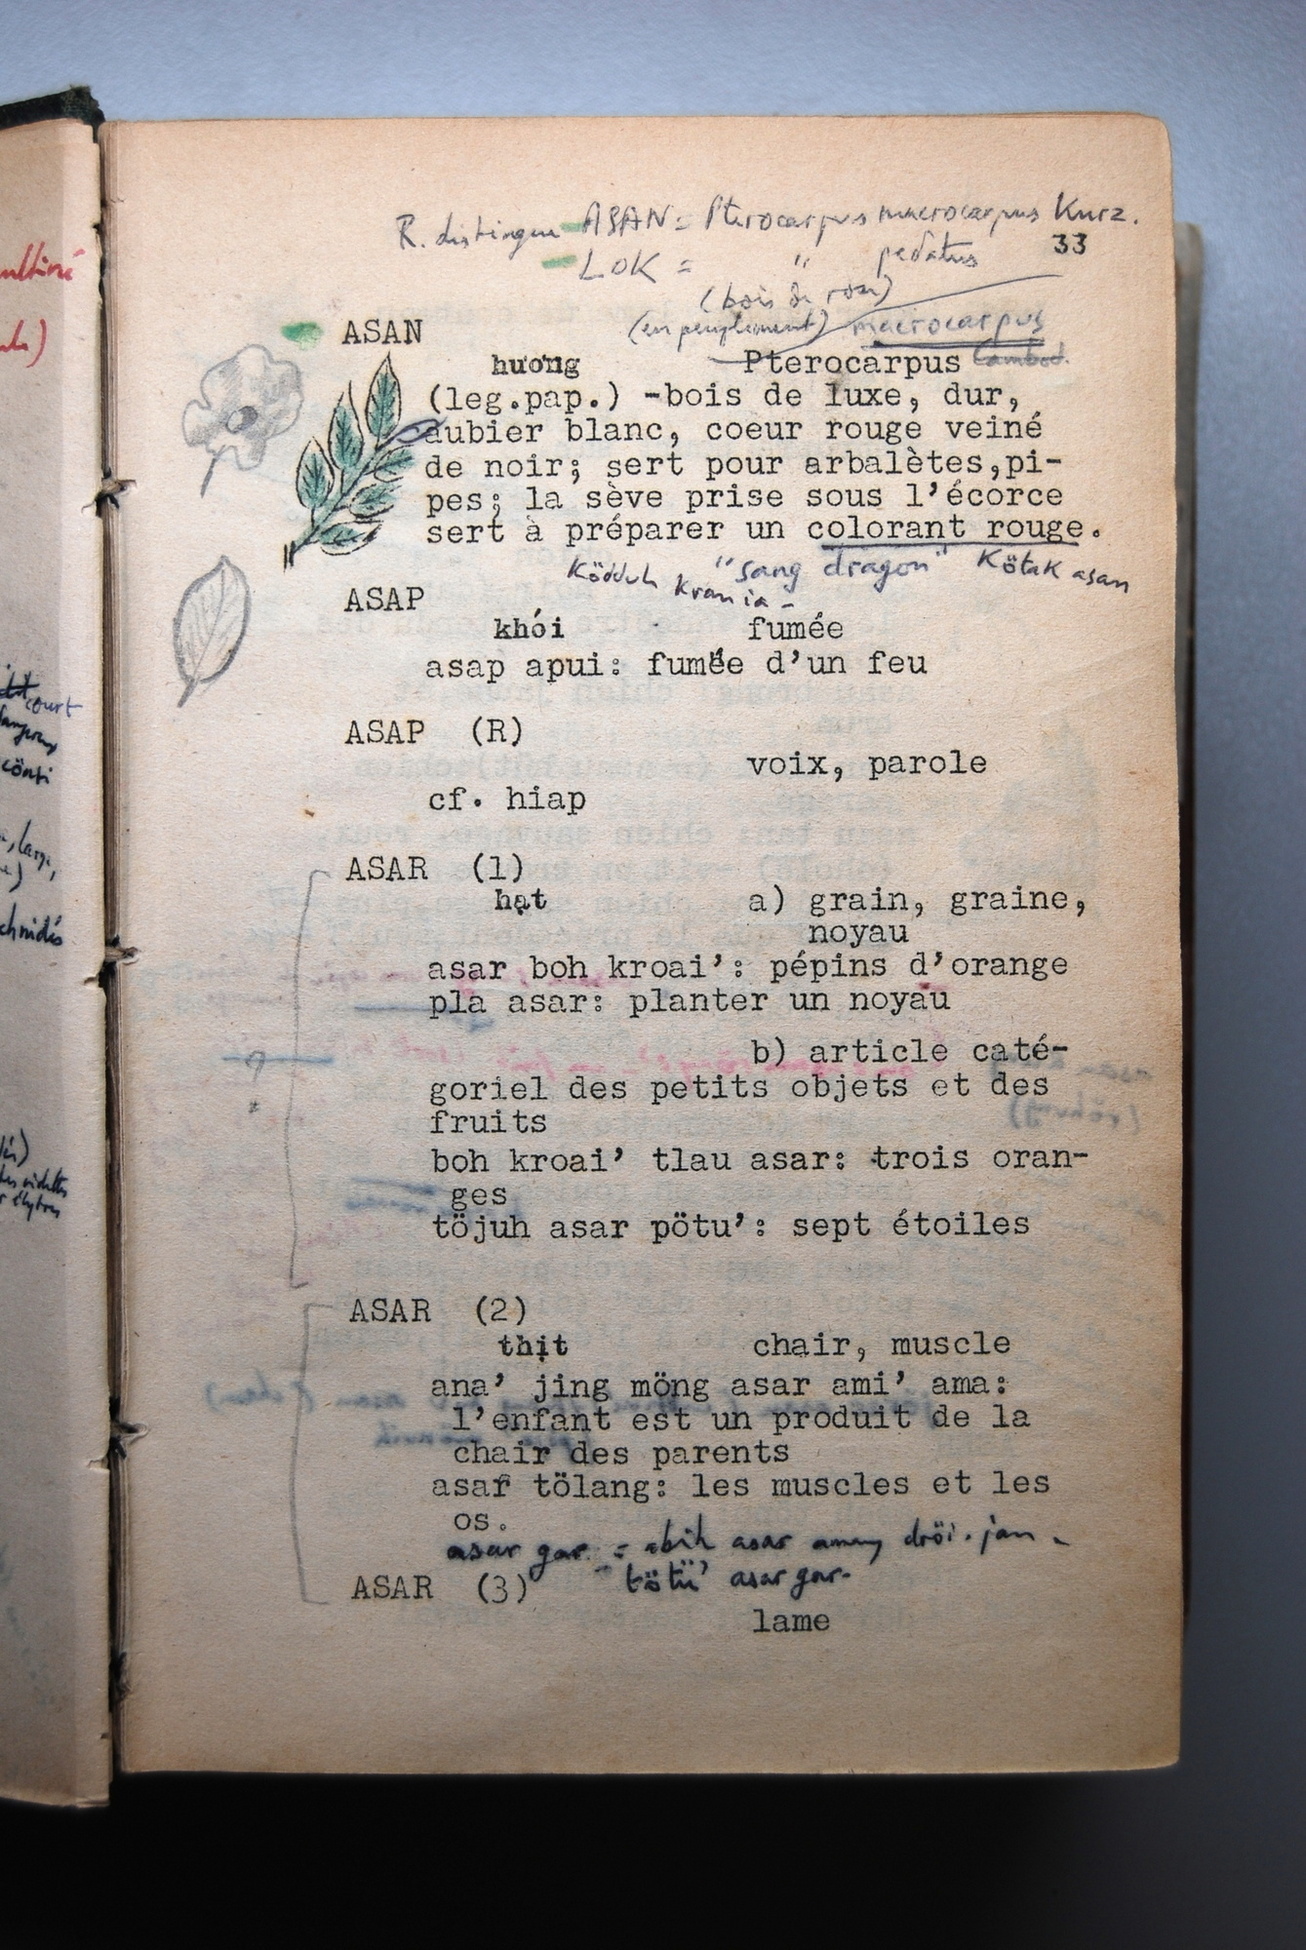 ulliné
R. distingue ASAN = Pterocarpus macrocarpus Kurz.
33
LOK = " pedatus
(bois de rose)
(en peuplement) macrocarpus
ASAN
hương Pterocarpus Cambod.
(leg.pap.) -bois de luxe, dur,
aubier blanc, coeur rouge veiné
de noir; sert pour arbalètes,pi-
pes; la sève prise sous l'écorce
sert à préparer un colorant rouge.
Ködduh krania - "sang dragon" Kötak asan
ASAP
khói fumée
asap apui: fumée d'un feu
court
ASAP (R)
voix, parole
cf. hiap
ASAR (1)
hạt a) grain, graine,
noyau
asar boh kroai': pépins d'orange
pla asar: planter un noyau
b) article caté-
goriel des petits objets et des
fruits
boh kroai' tlau asar: trois oran-
ges
töjuh asar pötu': sept étoiles
ASAR (2)
thịt chair, muscle
ana' jing möng asar ami' ama:
l'enfant est un produit de la
chair des parents
asar tölang: les muscles et les
os.
asar gar = abih asar dröi. jan
ASAR (3) tötü' asar gar-
lame